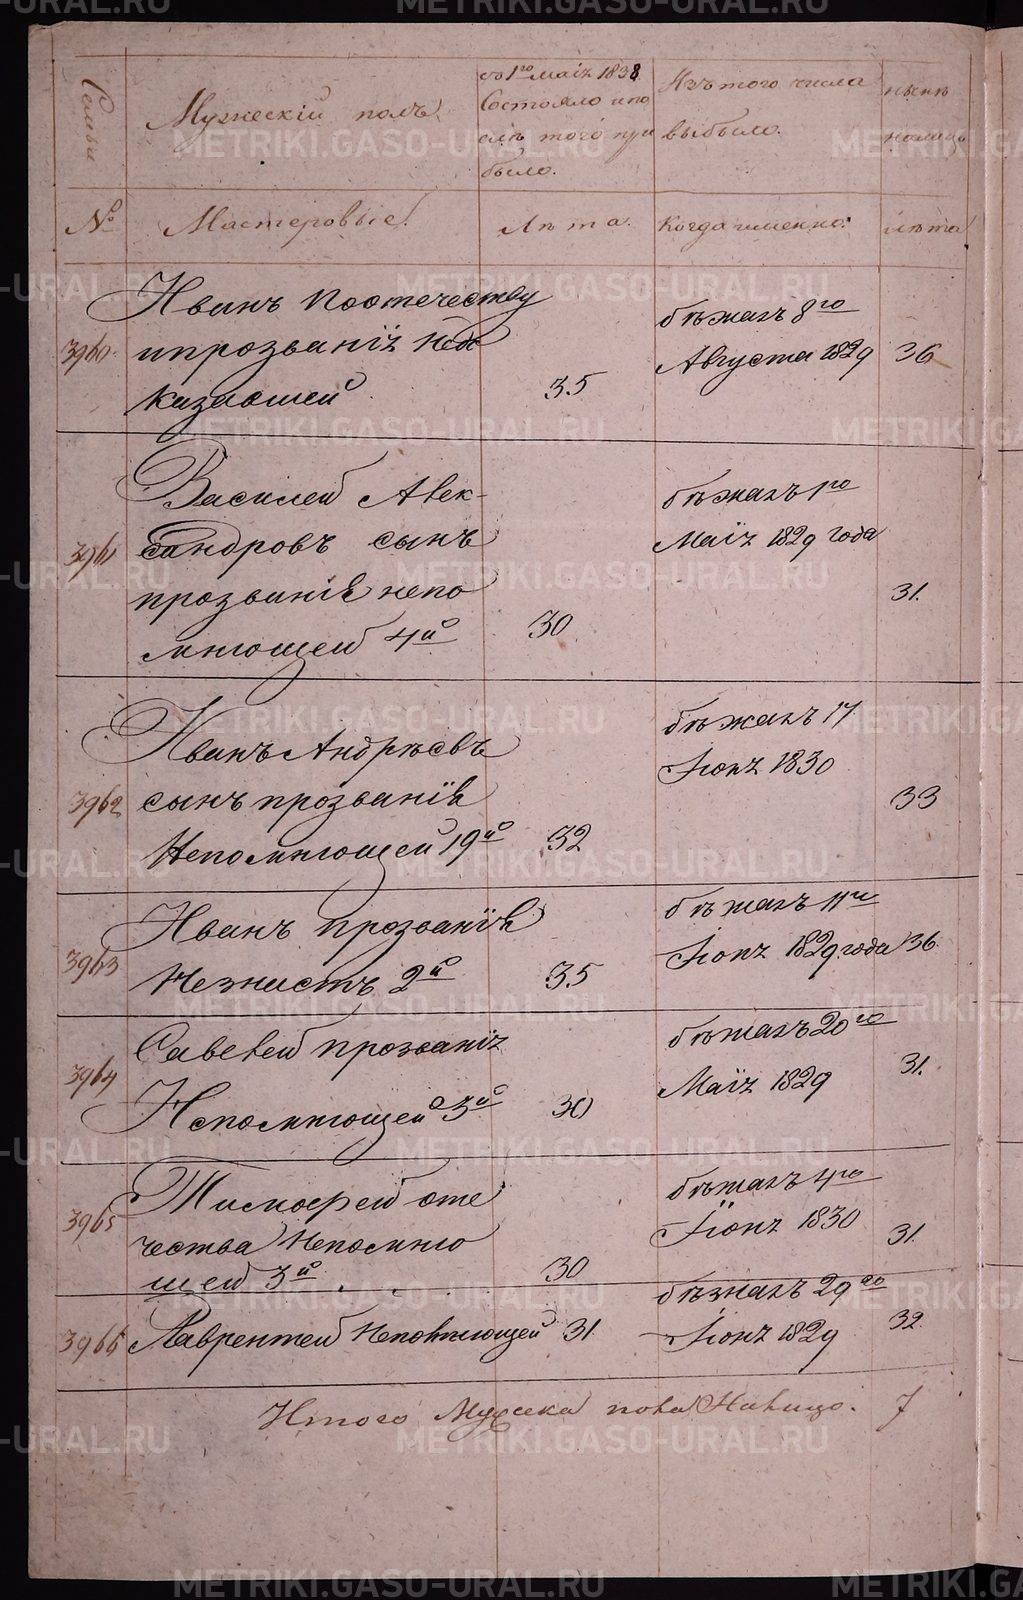 Семьи
Мужескій полъ
съ 1го Маія 1838
Состояло и по
слѣ того при
было.
Изъ того числа
выбыло.
нынѣ
налицо
№
Мастеровые
Лѣта.
Когда именно:
лѣта
3960.
Иванъ поотечеству
ипрозванію не
казавшей
35
бѣжалъ 8го
Августа 1829
36
3961
Василей Алек-
сандровъ сынъ
прозваніе непо
мнющей 4й
30
бѣжалъ 1го
Маія 1829 года
31.
3962
Иванъ Андрѣевъ
сынъ прозваніе
Непомнющей 19й
32
бѣжалъ 17
Іюня 1830
33
3963
Иванъ прозваніе
Незнистъ 2й
35
бѣжалъ 11го
Іюня 1829 года
36.
3964
Савелей прозванія
Непомнющей 3й
30
бѣжалъ 20го
Маія 1829
31.
3965
Тимофей оте
чества Непомню
щей 3й . . .
30
бѣжалъ 4го
Іюня 1830
31.
3966
Лаврентей Непомнющей
31
бѣжалъ 29го
Іюня 1829
32.
Итого Мужска пола Налицо.
7
METRIKI.GASO-URAL.RU